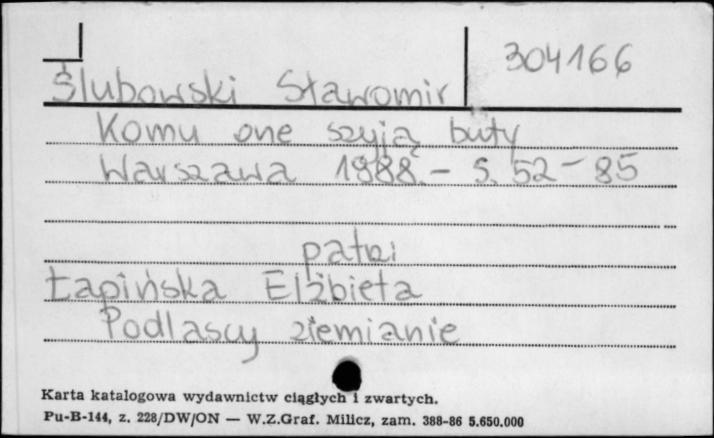 304166
Ślubowski Sławomir
Komu one szyją buty
Warszawa 1988. – S. 52 – 85
patrz
Łapińska Elżbieta
Podlascy ziemianie
Karta katalogowa wydawnictw ciągłych i zwartych.
Pu-B-144, z. 228/DW/ON — W.Z.Graf. Milicz, zam. 388-86 5.650.000